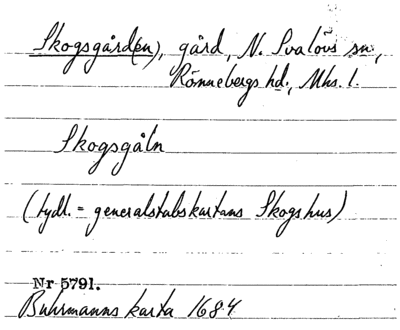 Skogsgård(en), gård, N. Svalövs sn,
Rönnebergs hd., Mhs. l.
Skogsgåln
(tydl. = generalstabskartans Skogshus)
Nr 5791.
Buhrmanns karta 1684